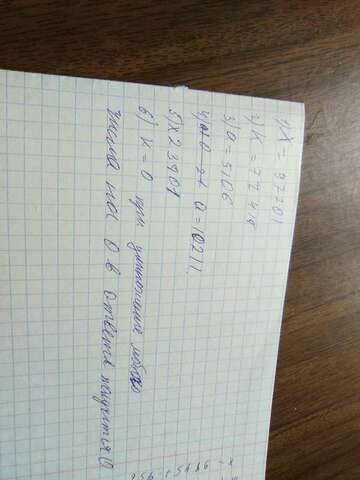 1) X = 97201
2) K = 77419
3) a = 5106
a = 10211
5) X 23901
6) k = 0 при умножении любого
числа на 0 в ответе получится 0